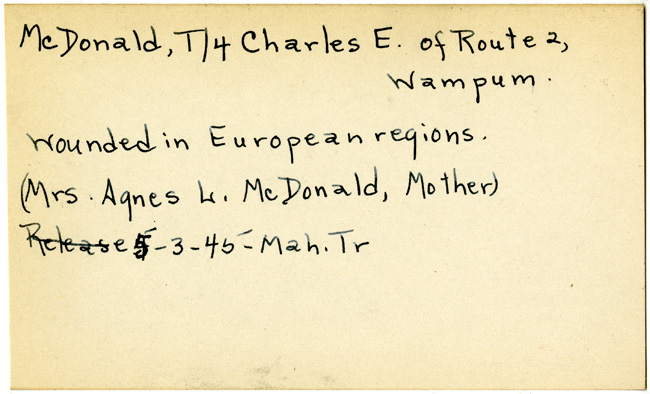 McDonald, T/4 Charles E. of Route 2,
Wampum.
Wounded in European regions.
(Mrs. Agnes L. McDonald, Mother)
Release 5-3-45-Mah. Tr